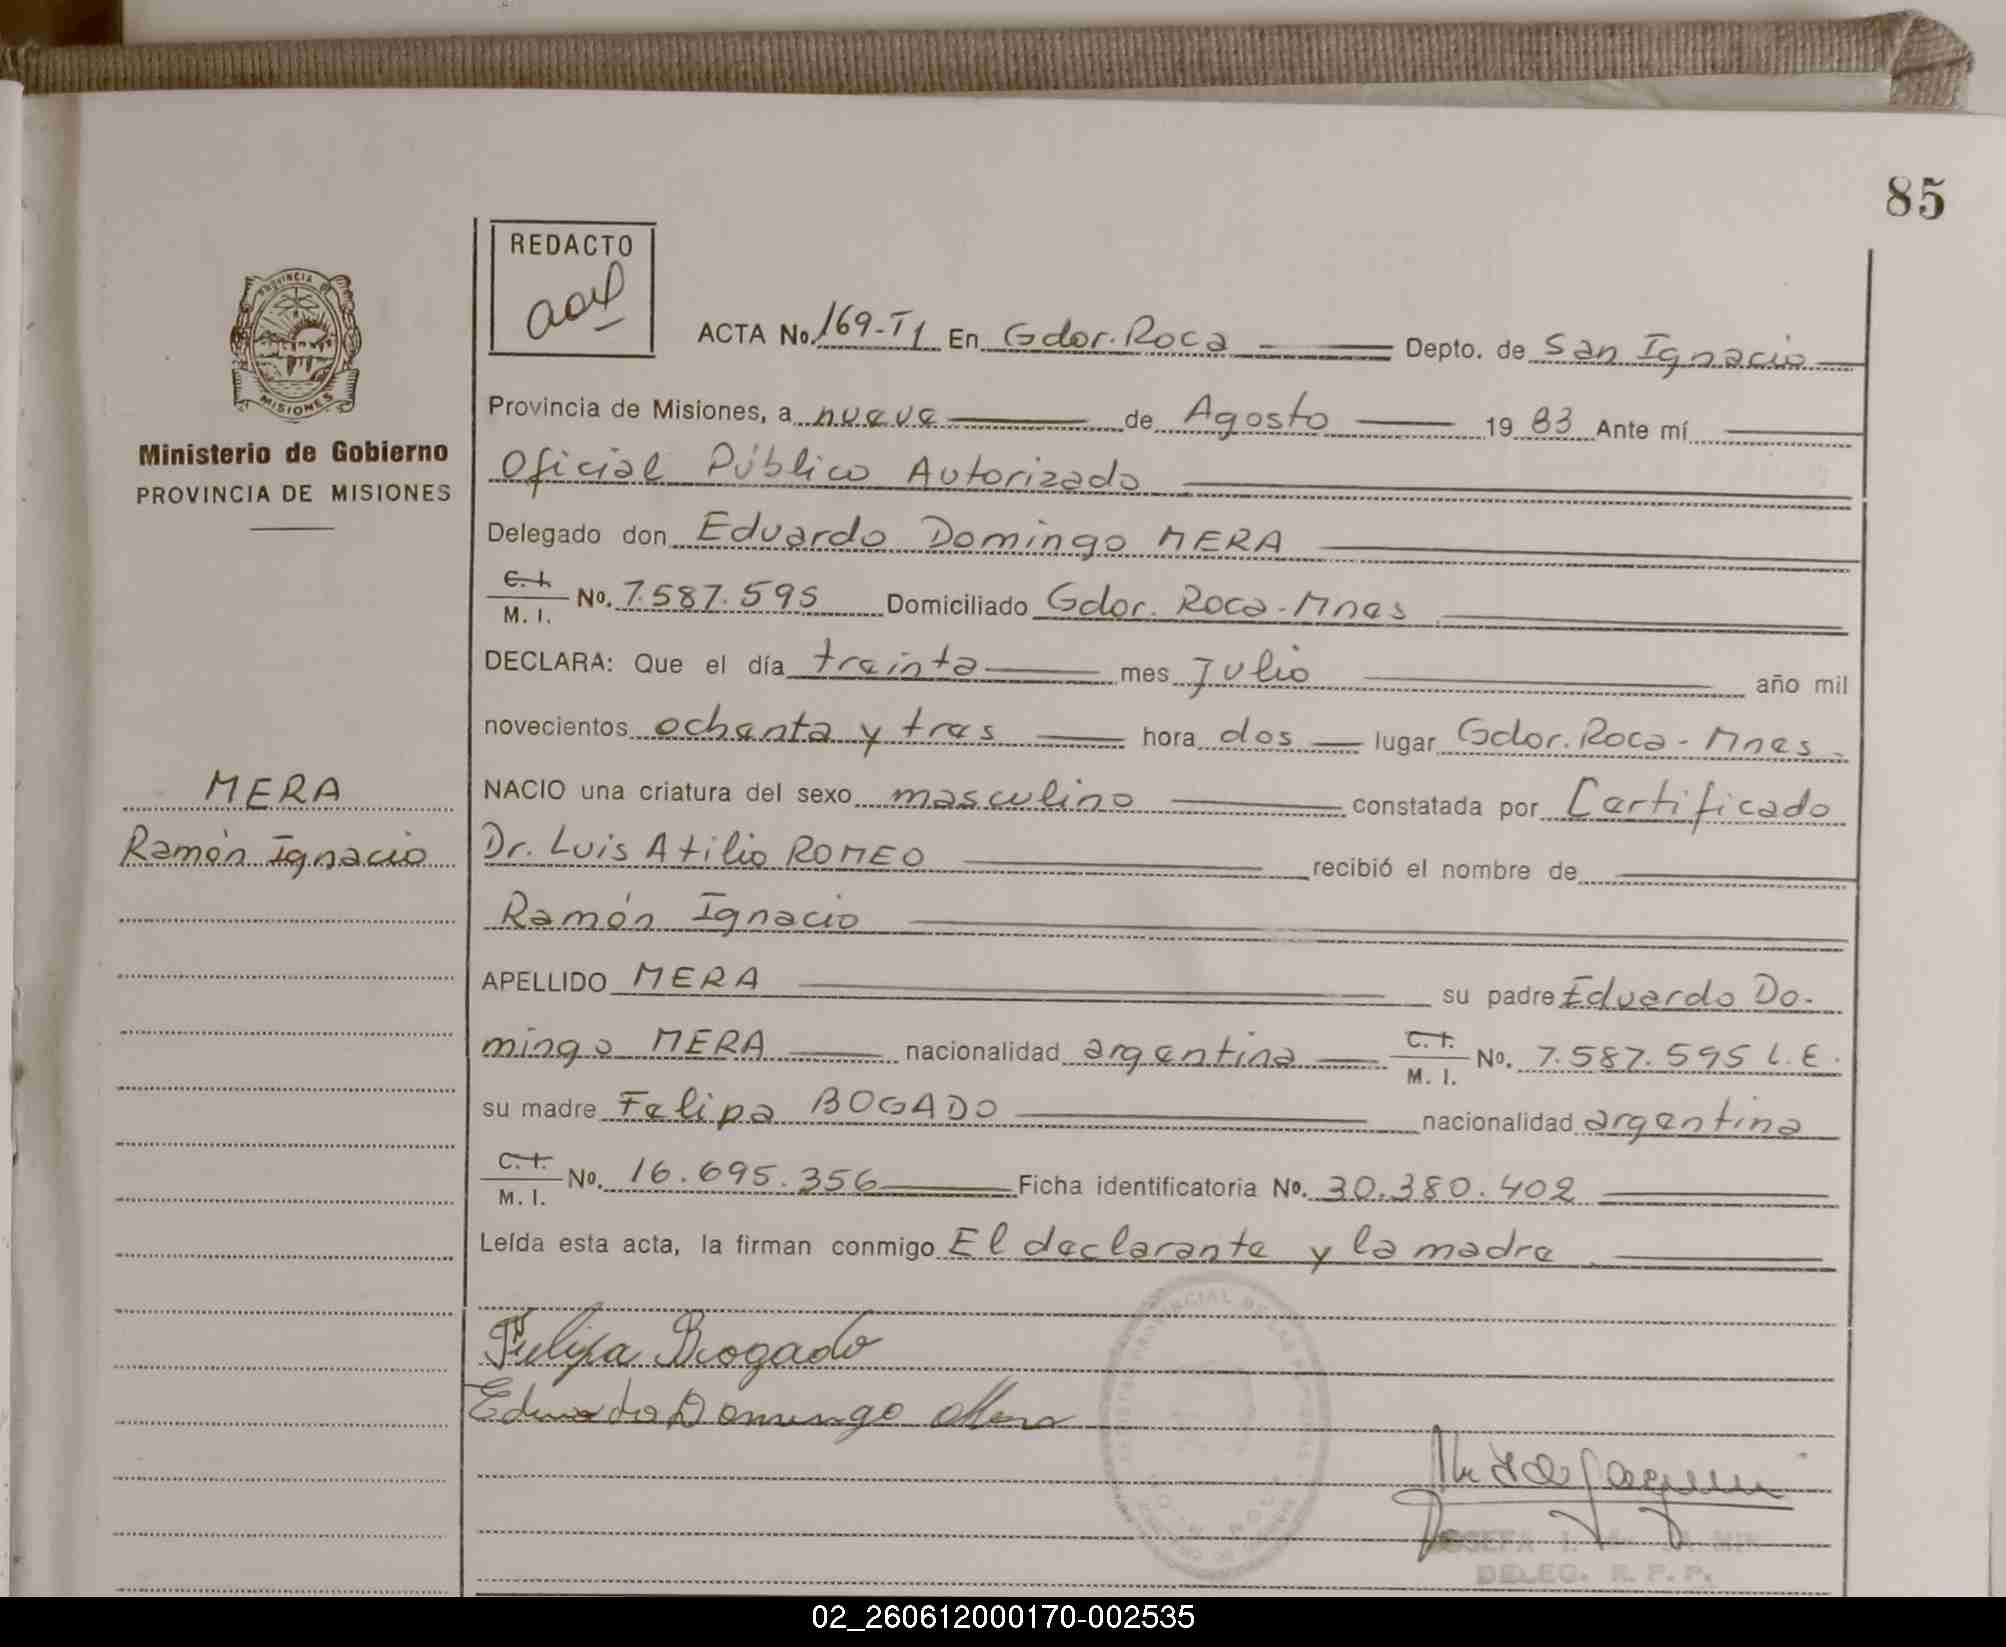 85
PROVINCIA DE
MISIONES
Ministerio de Gobierno
PROVINCIA DE MISIONES
MERA
Ramón Ignacio
REDACTO
ACTA No. 169-T1 En Gdor. Roca Depto. de San Ignacio
Provincia de Misiones, a nueve de Agosto 1983 Ante mí
Oficial Público Autorizado
Delegado don Eduardo Domingo MERA
C. I.
M. I. No. 7.587.595 Domiciliado Gdor. Roca-Mnes
DECLARA: Que el día treinta mes Julio año mil
novecientos ochenta y tres hora dos lugar Gdor. Roca - Mnes.
NACIO una criatura del sexo masculino constatada por Certificado
Dr. Luis Atilio ROMEO recibió el nombre de
Ramón Ignacio
APELLIDO MERA su padre Eduardo Do-
mingo MERA nacionalidad argentina C. I.
M. I. No. 7.587.595 L.E.
su madre Felipa BOGADO nacionalidad argentina
C. I.
M. I. No. 16.695.356 Ficha identificatoria No. 30.380.402
Leída esta acta, la firman conmigo El declarante y la madre
Felipa Bogado
Eduardo Domingo Mera
PROVINCIAL DE LAS
JOSEFA I.
DELEG. R. P. P.
02_260612000170-002535